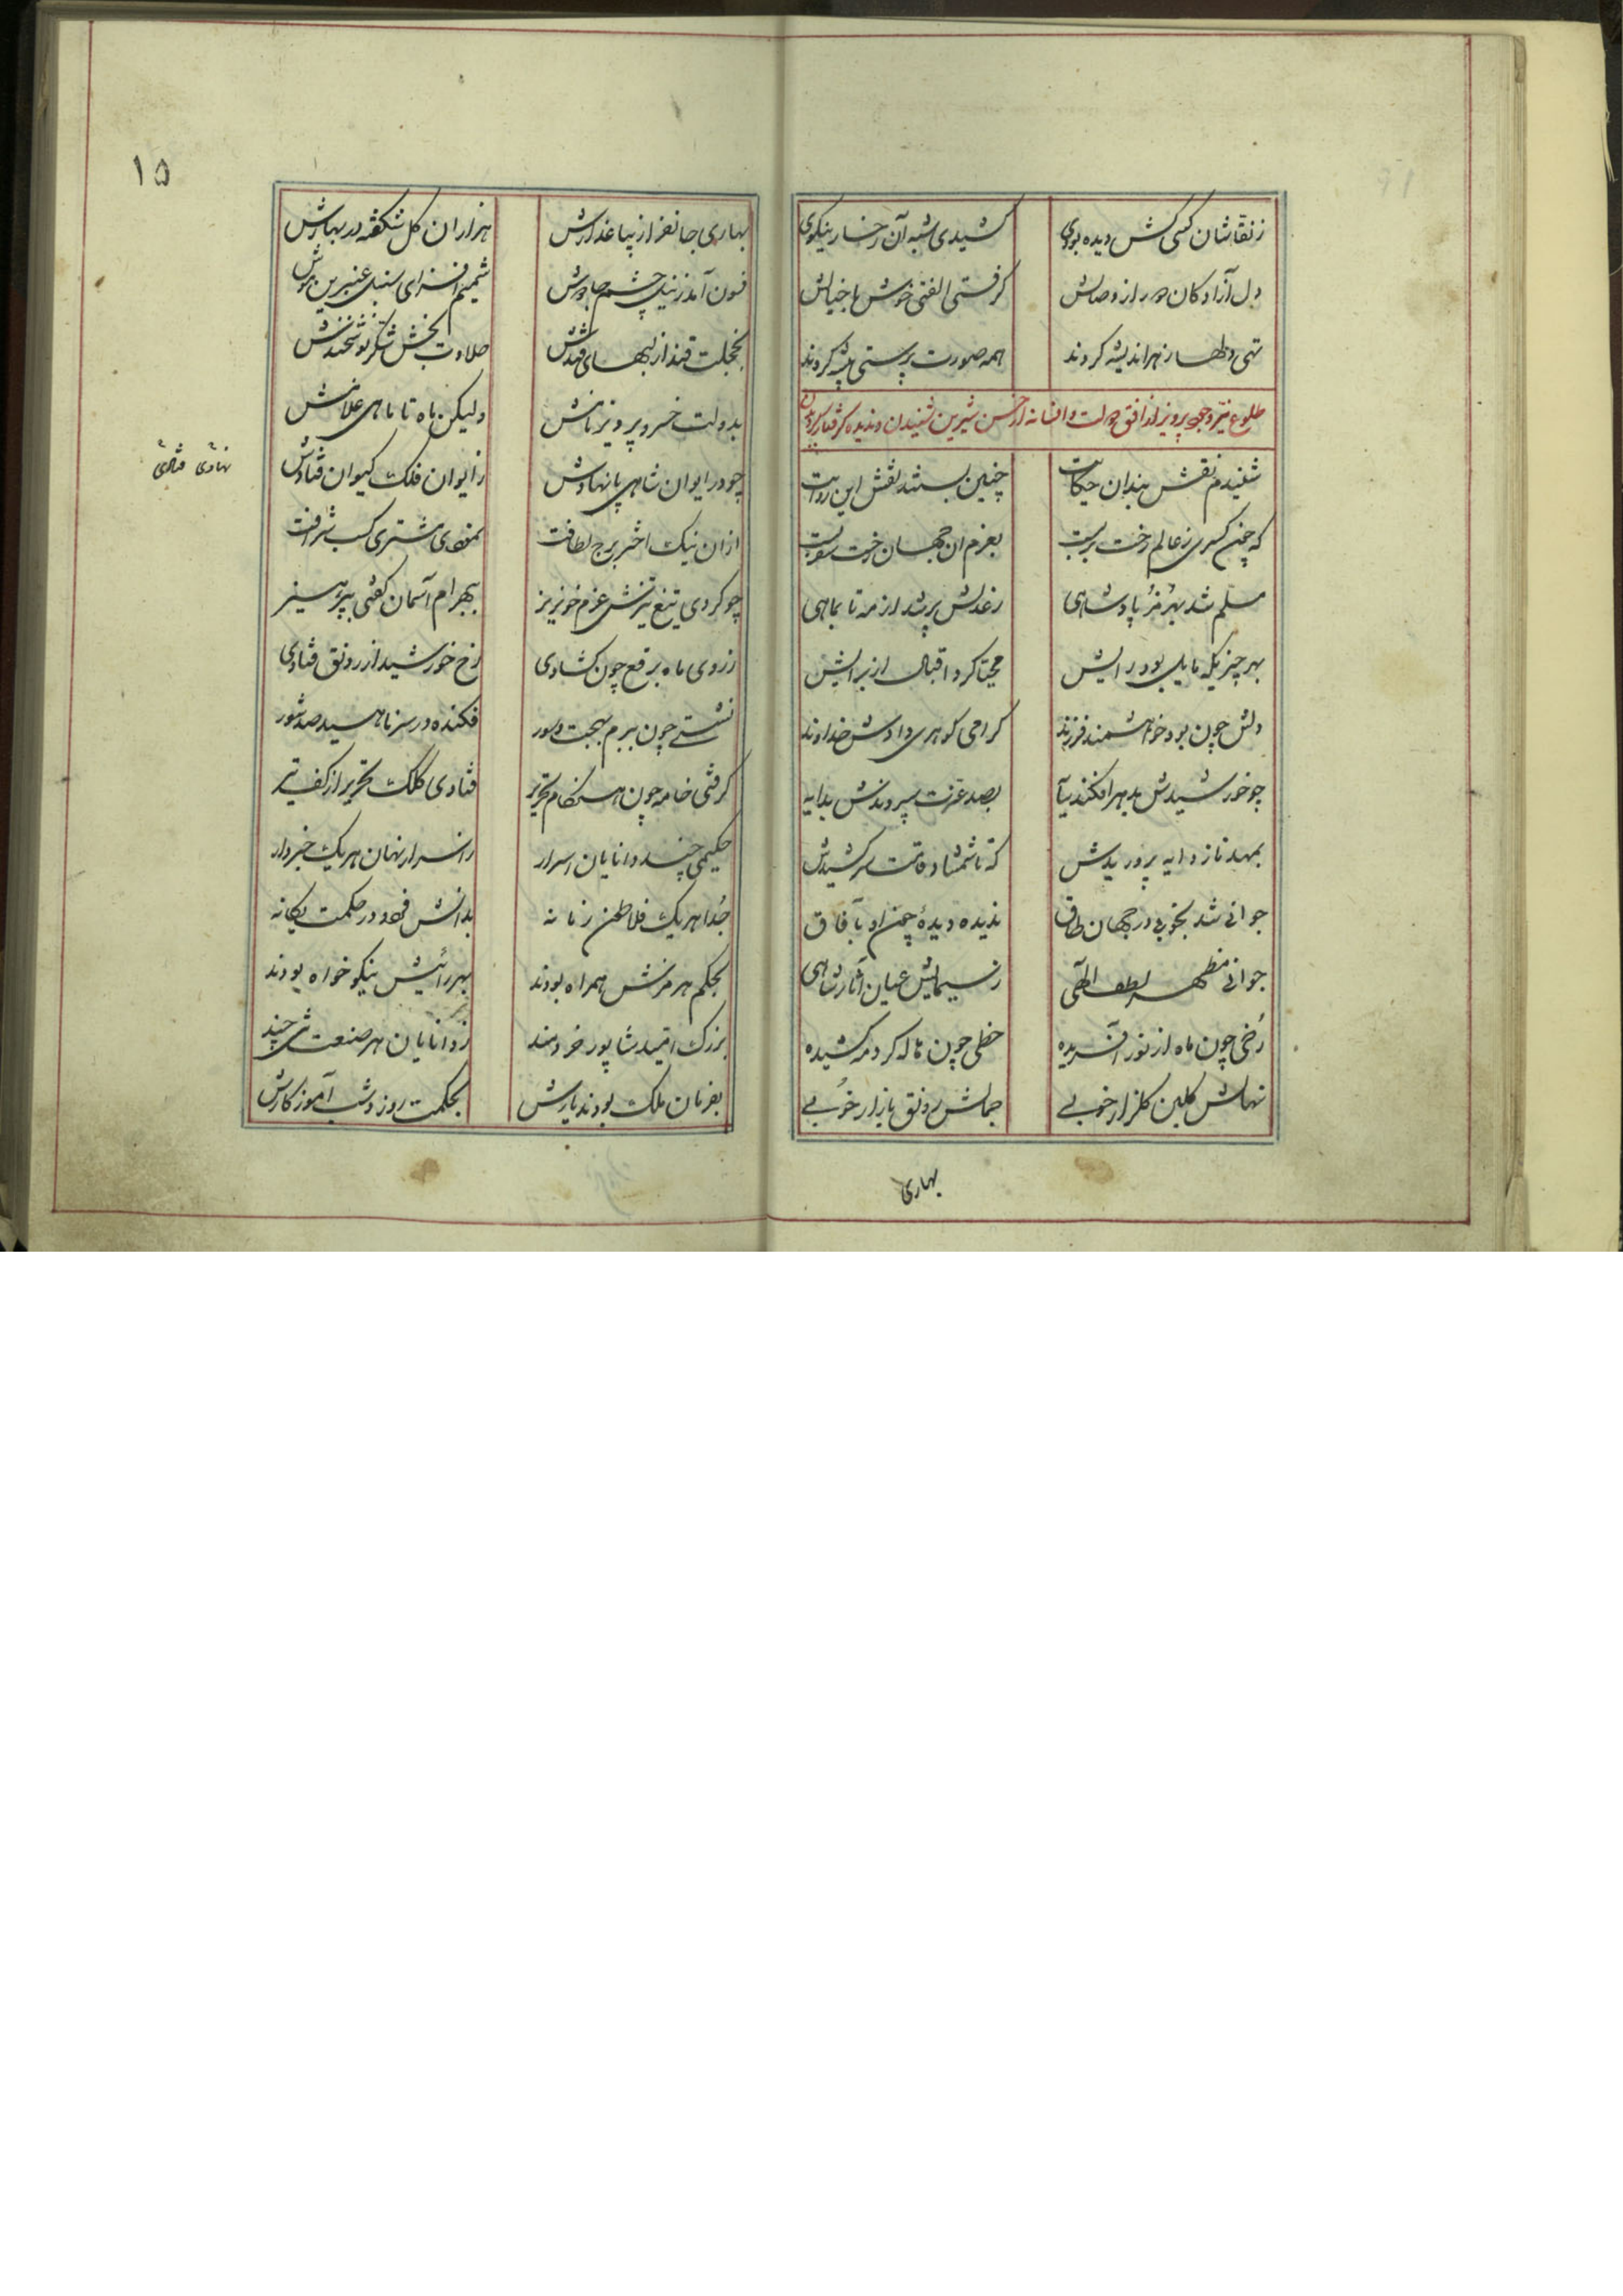 ز نقاشان کسی کش دیده بودی کشیدی شبه آن رخسار نیکوی
دل آزادکان دور از وصالش گرفتی الفتی خوش با خیالش
تهی دلها ز هر اندیشه کردند همه صورت پرستی پیشه کردند
طلوع نیر وجود پرویز از افق دولت و افسانه از حسن شیرین شنیدن و ندیده گرفتار گردیدن
شنیدم نقش بندان حکایت چنین بستند نقش این روایت
که چون کسری ز عالم رخت بربست بعزم آن جهان رخت سفر بست
مسلم شد بهرمز پادشاهی ز عدلش پر شد از مه تا بماهی
بهر چیزیکه مایل بود رایش مهیا کرد اقبال از برایش
دلش چون بود خواهشمند فرزند کرامی کوهری دادش خداوند
چو خورشیدش بمهر افکند سایه بصد عزت سپردندش بدایه
بمهد ناز دایه پروریدش که تا شمشاد قامت سر کشیدش
جوانی شد بخوبی در جهان طاق ندیده دیدهٔ چون او بآفاق
جوانی مظهر لطف الهی ز سیمایش عیان آثار شاهی
رخی چون ماه از نور آفریده خطی چون هاله کرد مه کشیده
نهالش کلبن کلزار خوبی جمالش رونق بازار خوبی
بهاری
۱۵
بهاری جانفزا زیبا عذارش هزاران کل شکفته در بهارش
فسون آمد ز نیل چشم جادوش شمیم افزای سنبل عنبرین موش
بخجلت قند از لبهای قندش حلاوت بخش شکر نوشخندش
بدولت خسرو پرویز نامش ولیکن ماه تا ماهی غلامش
چو در ایوان شاهی پا نهادش ز ایوان فلک کیوان فتادش
نهادی فتادی
از آن نیک اختر برج لطافت نمودی مشتری کسب شرافت
چو کردی تیغ تیزش عزم خونریز ببهرام آسمان کفتی بپرهیز
ز روی ماه برقع چون کشادی رخ خورشید از رونق فتادی
نشستی چون ببزم بهجت و سور فکنده در سر ناهید صد شور
کرفتی خامه چون هنکام تحریر فتادی کلک تحریر از کف تیر
حکیمی چند دانایان اسرار ز اسرار نهان هر یک خبردار
جدا هر یک فلاطون زمانه بدانش فرد و در حکمت یکانه
بحکم هرمزش همراه بودند بهر رائیش نیکو خواه بودند
بزرک امید شاپور خردمند ز دانایان هر صنعت تنی چند
بفرمان ملک بودند یارش بحکمت روز و شب آموزکارش